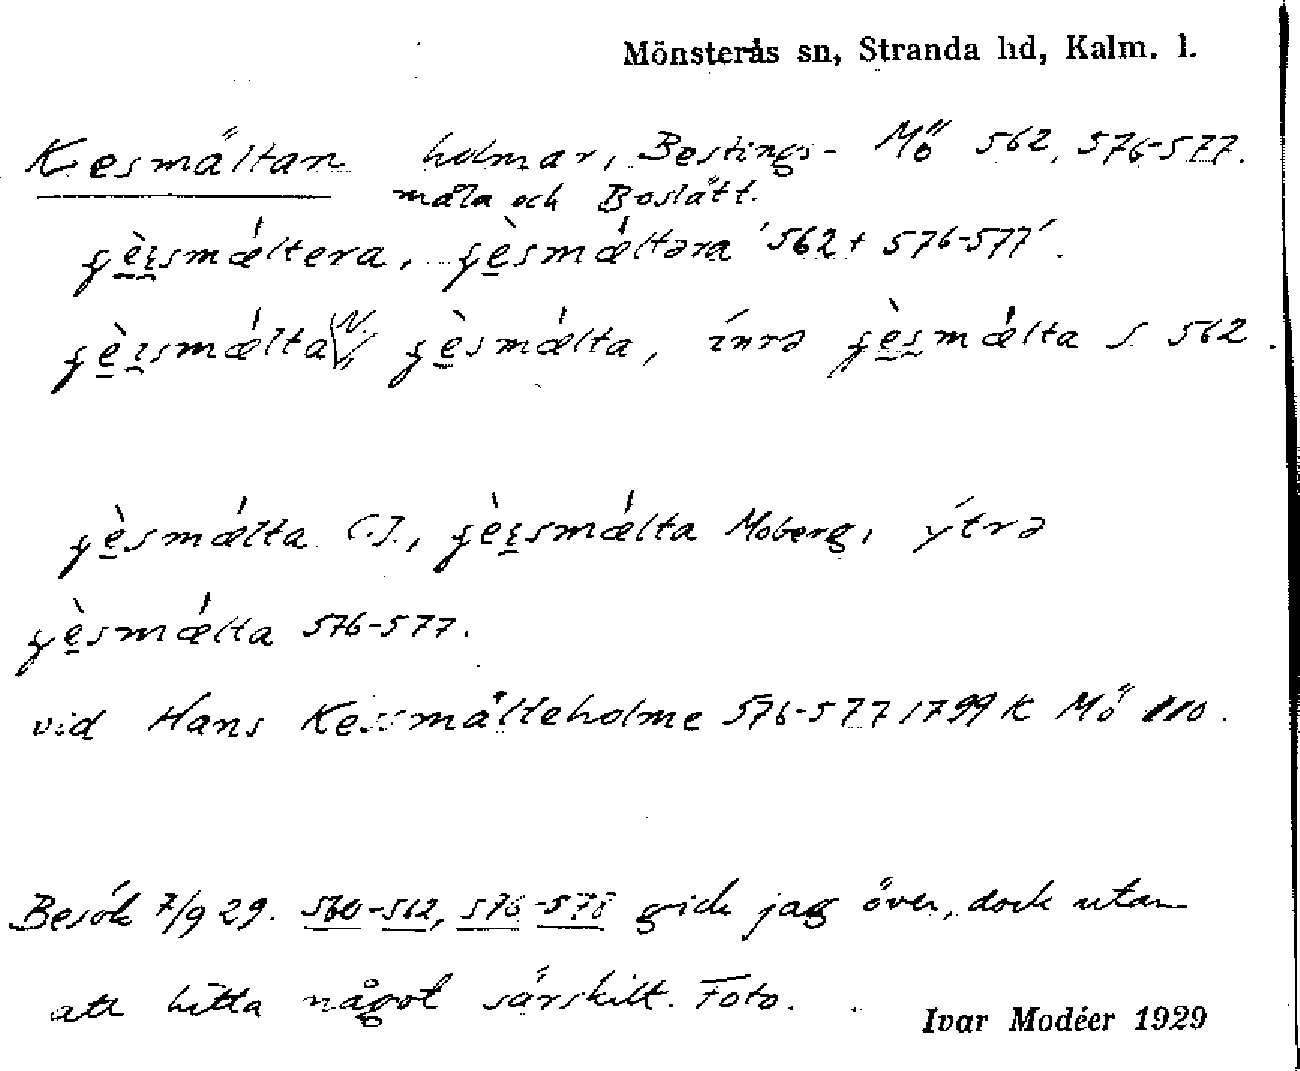 Mönsterås sn, Stranda hd, Kalm. l.
Kesmältan holmar, Bestings- Mö 562, 576-577.
måla och Boslätt.
ɟè̱ꞩsmǽltera, ɟè̱smǽltəra 562 + 576-577.
ɟè̱ꞩsmǽlta N. ɟè̱smǽlta, ínrə ɟè̱smǽlta S 562.
ɟè̱smǽlta C.J., ɟè̱ꞩsmǽlta Moberg, ýtrə
ɟè̱smǽlta 576-577.
vid Hans Kessmälteholme 576-577 1799 K Mö 110.
Besök 7/9 29. 560-562, 576-578 gick jag över, dock utan
att hitta något särskilt. Foto.
Ivar Modéer 1929